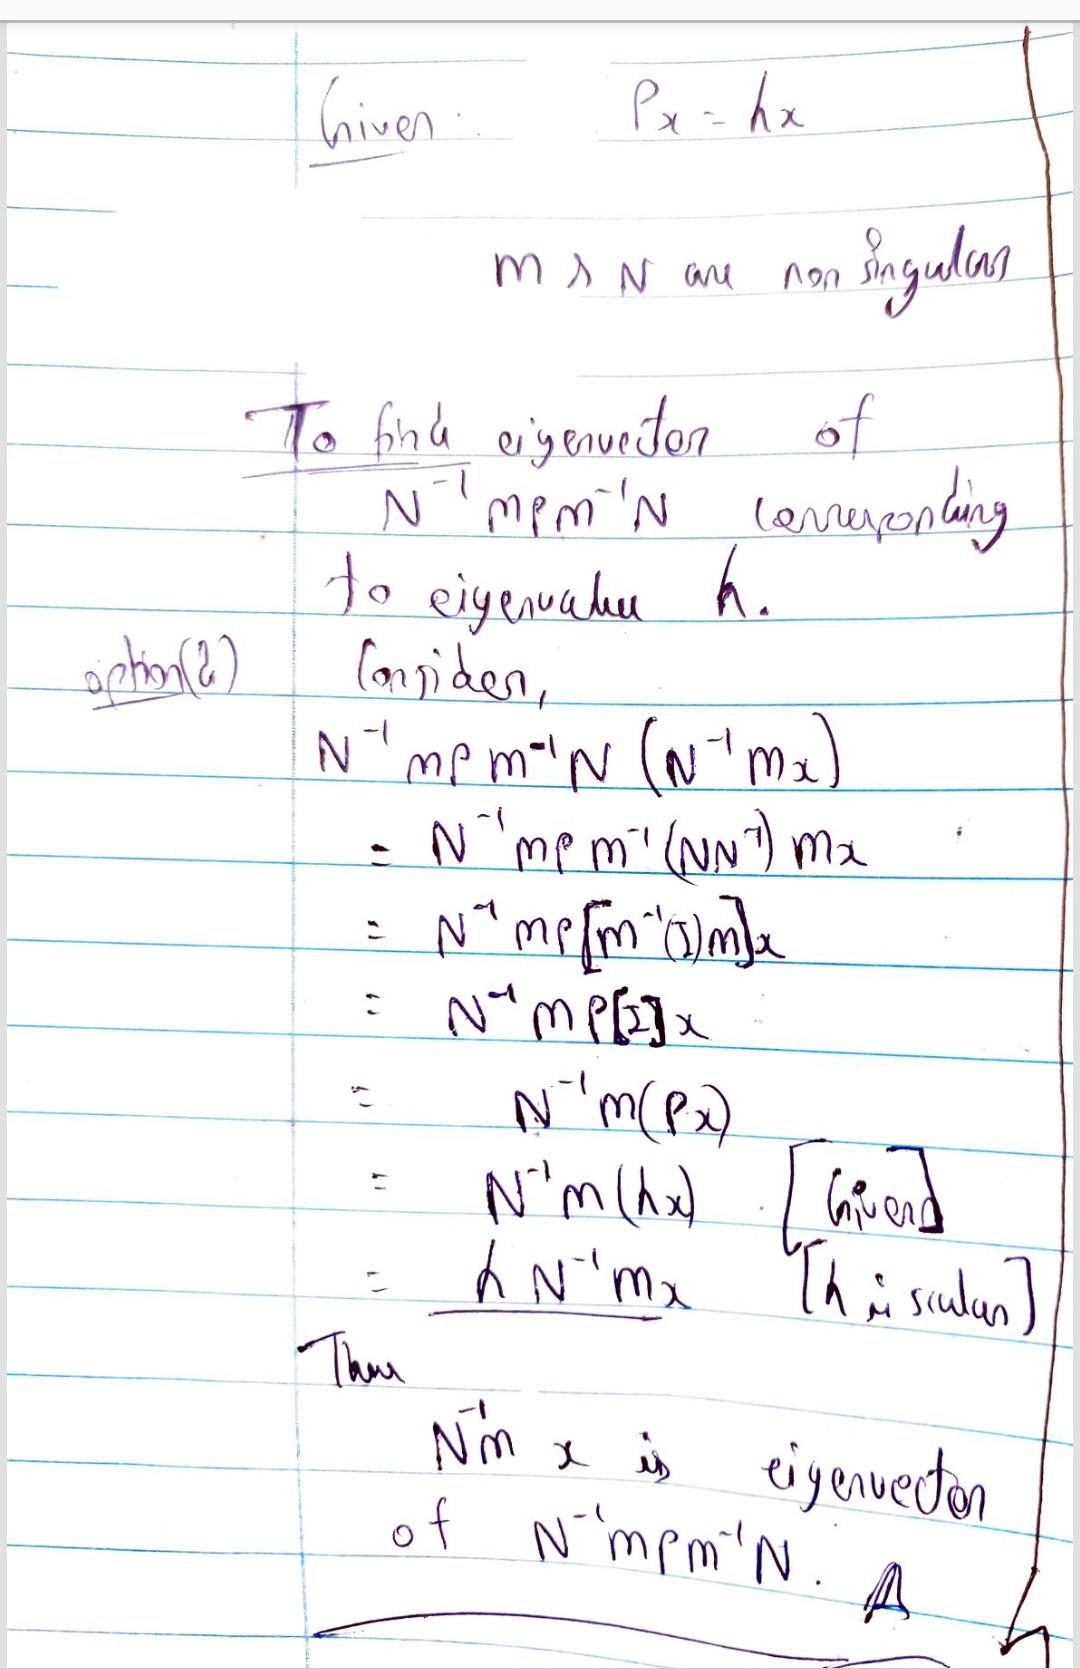 Given: Px = hx
m & N are non singular
To find eigenvector of
N⁻¹mpm⁻¹N corresponding
to eigenvalue h.
option(2) Consider,
N⁻¹mpm⁻¹N (N⁻¹mx)
= N⁻¹mpm⁻¹(NN⁻¹) mx
= N⁻¹mp[m⁻¹(I)m]x
= N⁻¹mP[I]x
= N⁻¹m(Px)
= N⁻¹m(hx) [Given]
= h N⁻¹mx [h is scalar]
Thus
N⁻¹m x is eigenvector
of N⁻¹mpm⁻¹N.